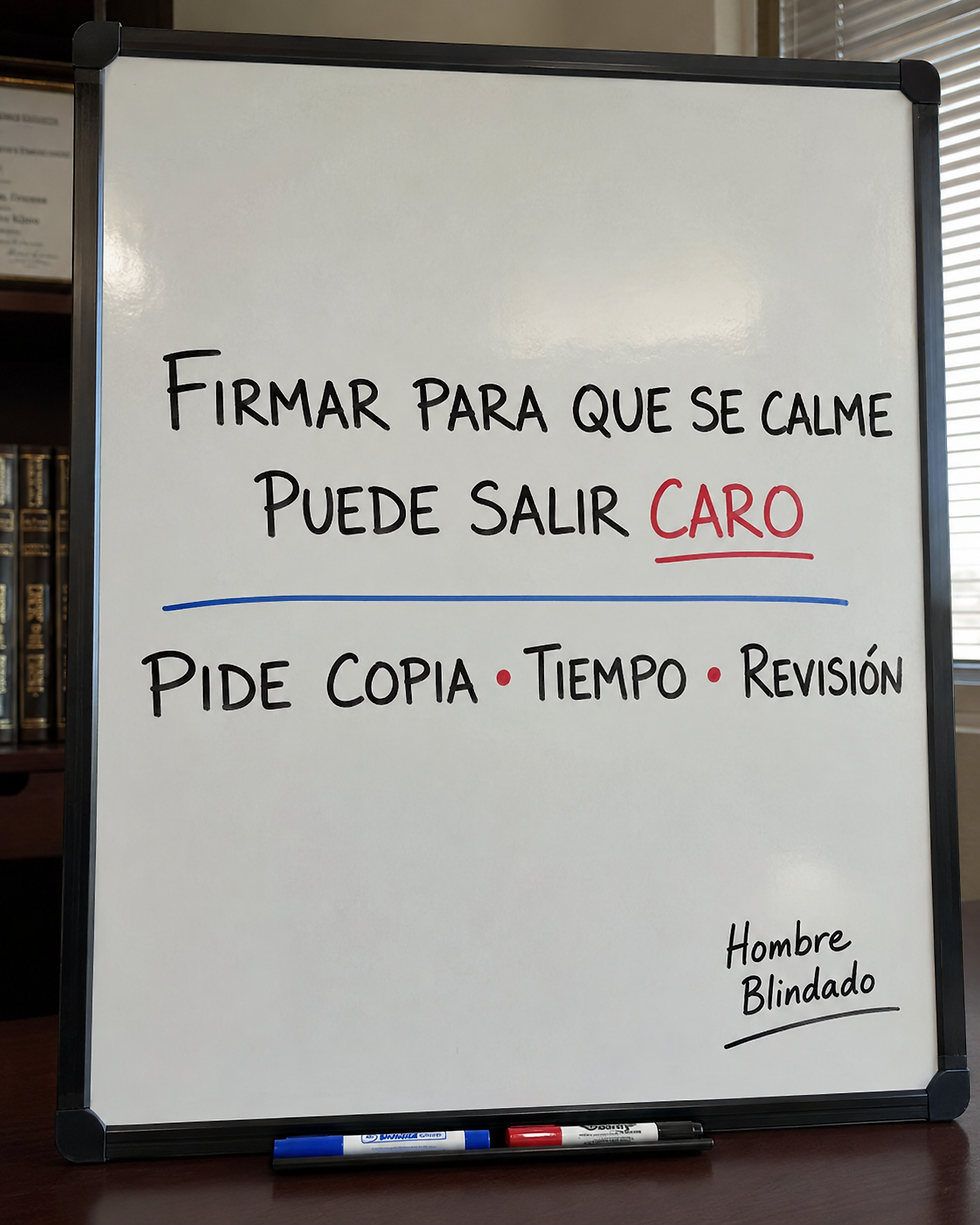 FIRMAR PARA QUE SE CALME
PUEDE SALIR CARO
PIDE COPIA • TIEMPO • REVISIÓN
Hombre
Blindado